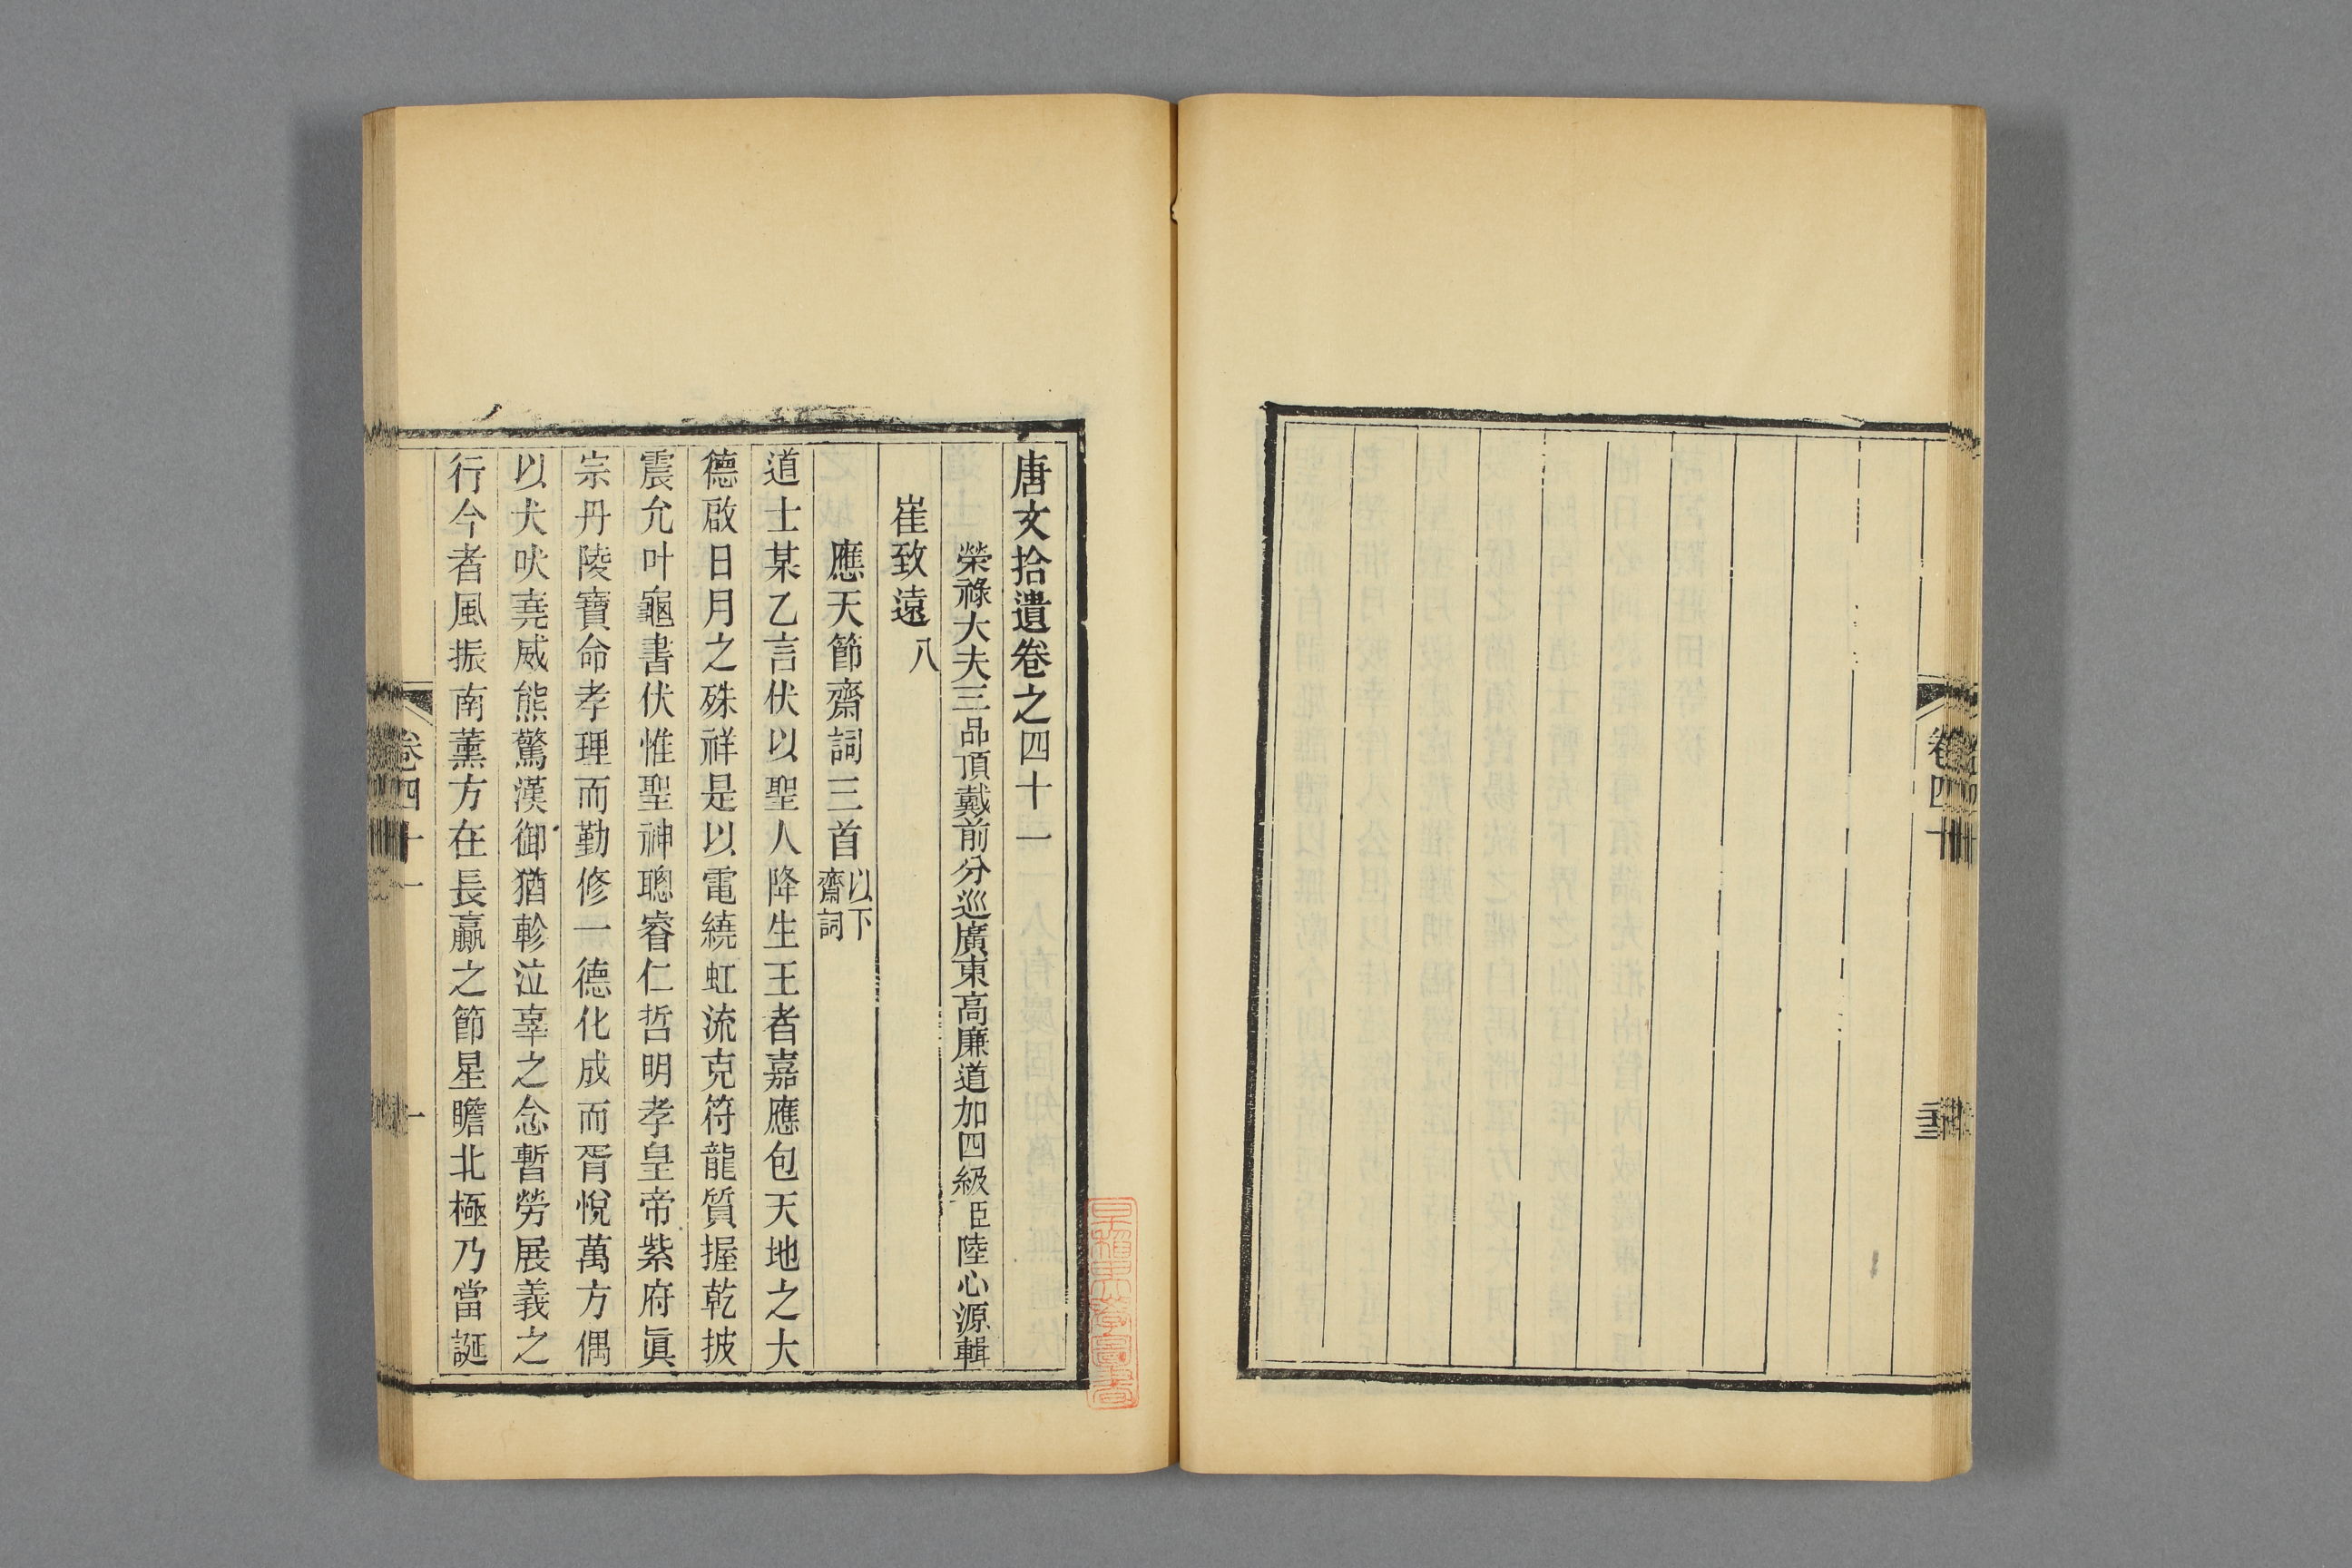 卷四十
三
唐文拾遺卷之四十一
榮祿大夫三品頂戴前分巡廣東高廉道加四級臣陸心源輯
崔致遠八
應天節齋詞三首以下齋詞
道士某乙言伏以聖人降生王者嘉應包天地之大
德啟日月之殊祥是以電繞虹流克符龍質握乾披
震允叶龜書伏惟聖神聰睿仁哲明孝皇帝紫府眞
宗丹陵寶命孝理而勤修一德化成而胥悅萬方偶
以犬吠堯威熊驚漢御猶軫泣辜之念暫勞展義之
行今者風振南薰方在長贏之節星瞻北極乃當誕
卷四十一
一